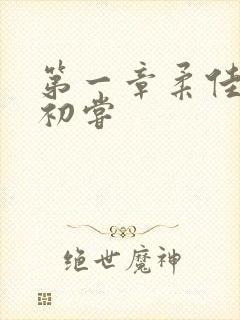 第一章柔佳
初尝
绝世魔神